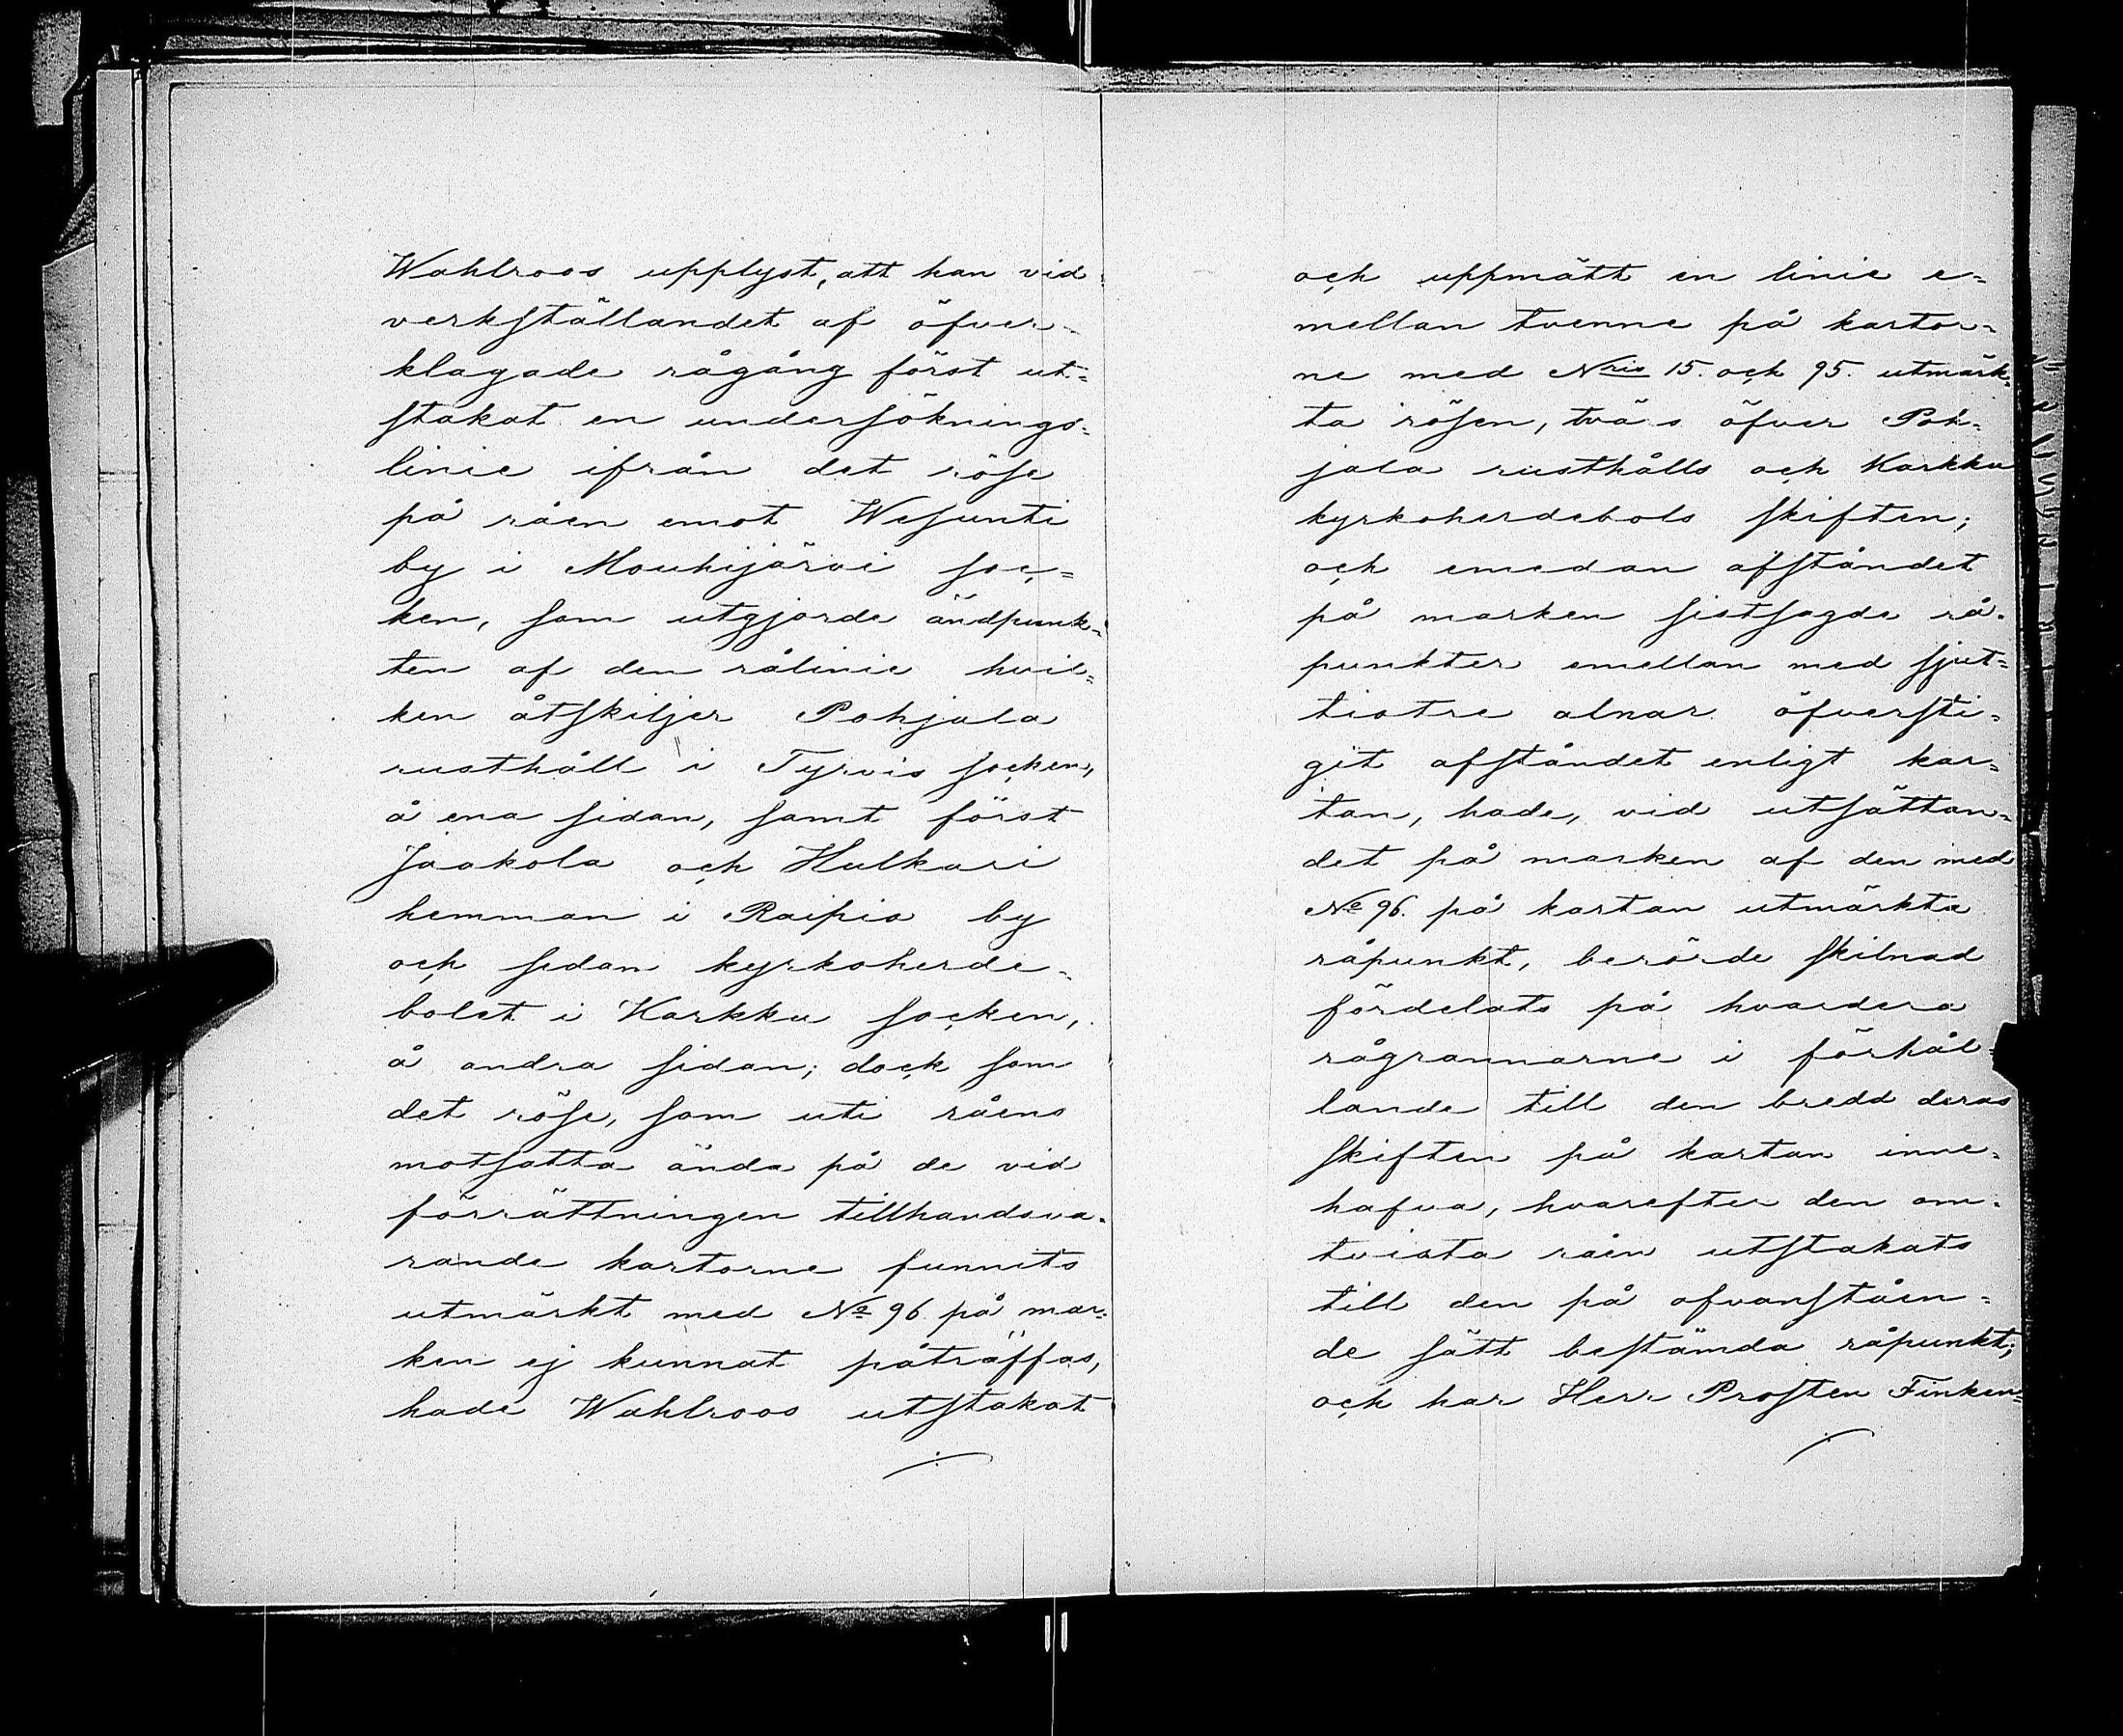 Wahlroos upplyst, att han vid
verkställandet af öfver-
klagade rågång först ut-
stakat en undersöknings-
linie ifrån det röse
på råen emot Wesunti
by i Mouhijärvi soc-
ken, som utgjorde ändpunk-
ten af den rålinie hvil-
ken åtskiljer Pohjala
rusthåll i Tyrvis socken,
å ena sidan, samt först
Jaakola och Hulkari
hemman i Raipio by
och sedan kyrkoherde-
bolet i Karkku socken,
å andra sidan; dock som
det röse, som uti råens
motsatta ända på de vid
förrättningen tillhandsva-
rande kartorne funnits
utmärkt med No 96. på mar-
ken ej kunnat påträffas,
hade Wahlroos utstakat
och uppmätt en linie e-
mellan tvenne på kartor-
ne med Nris 15. och 95. utmärk-
ta rösen, tvärs öfver Poh-
jala rusthålls och Karkku
kyrkoherdebols skiften;
och emedan afståndet
på marken sistsagde rå-
punkter emellan med sjut-
tiotre alnar öfversti-
git afståndet enligt kar-
tan, hade, vid utsättan-
det på marken af den med
No 96. på kartan utmärkta
råpunkt, berörde skilnad
fördelats på hvardera
rågrannarne i förhål-
lande till den bredd deras
skiften på kartan inne-
hafva, hvarefter den om-
tvista råen utstakats
till den på ofvanståen-
de sätt bestämda råpunkt;
och har Herr Prosten Finken-